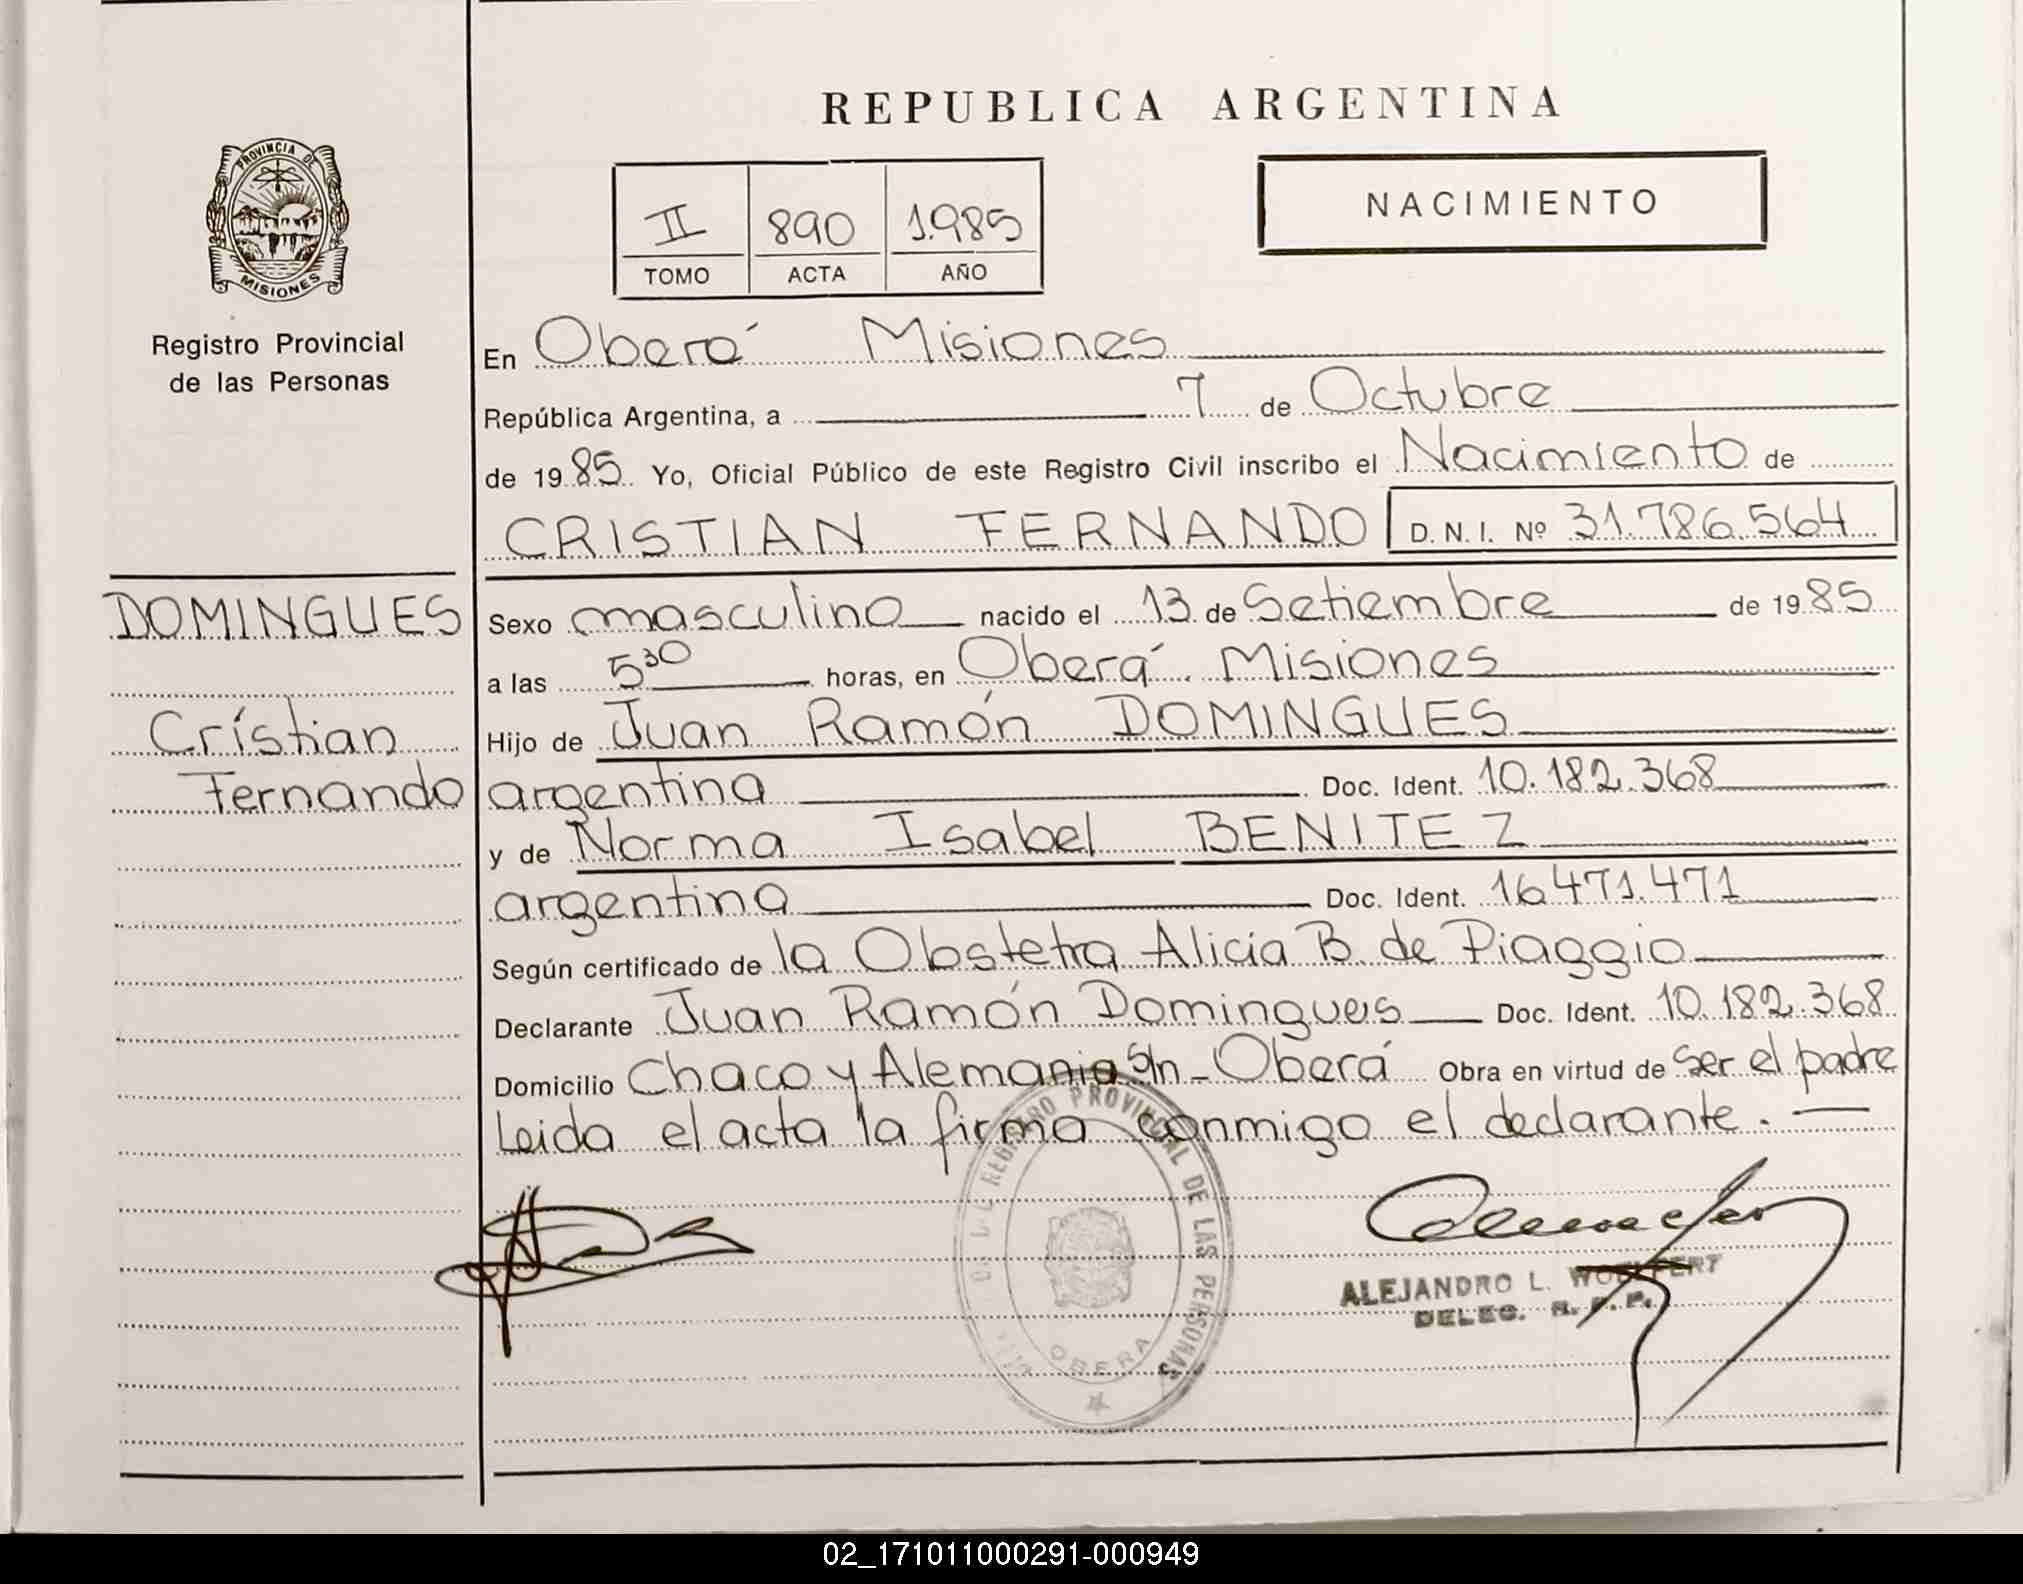 REPUBLICA ARGENTINA
PROVINCIA DE
MISIONES
Registro Provincial
de las Personas
II 890 1.985
TOMO ACTA AÑO
NACIMIENTO
En Oberá Misiones
República Argentina, a 7 de Octubre
de 1985. Yo, Oficial Público de este Registro Civil inscribo el Nacimiento de
CRISTIAN FERNANDO D.N.I. Nº 31.786.564
DOMINGUES
Cristian
Fernando
Sexo masculino nacido el 13 de Setiembre de 1985
a las 5 30 horas, en Oberá Misiones
Hijo de Juan Ramón DOMINGUES
argentina Doc. Ident. 10.182.368
y de Norma Isabel BENITEZ
argentina Doc. Ident. 16.471.471
Según certificado de la Obstetra Alicia B. de Piaggio
Declarante Juan Ramón Domingues Doc. Ident. 10.182.368
Domicilio Chaco y Alemania S/n - Oberá Obra en virtud de ser el padre
Leida el acta la firma conmigo el declarante.
REGISTRO PROVINCIAL DE LAS PERSONAS
OBERA
ALEJANDRO L. WOELFERT
DELEG. R. P. P.
02_171011000291-000949